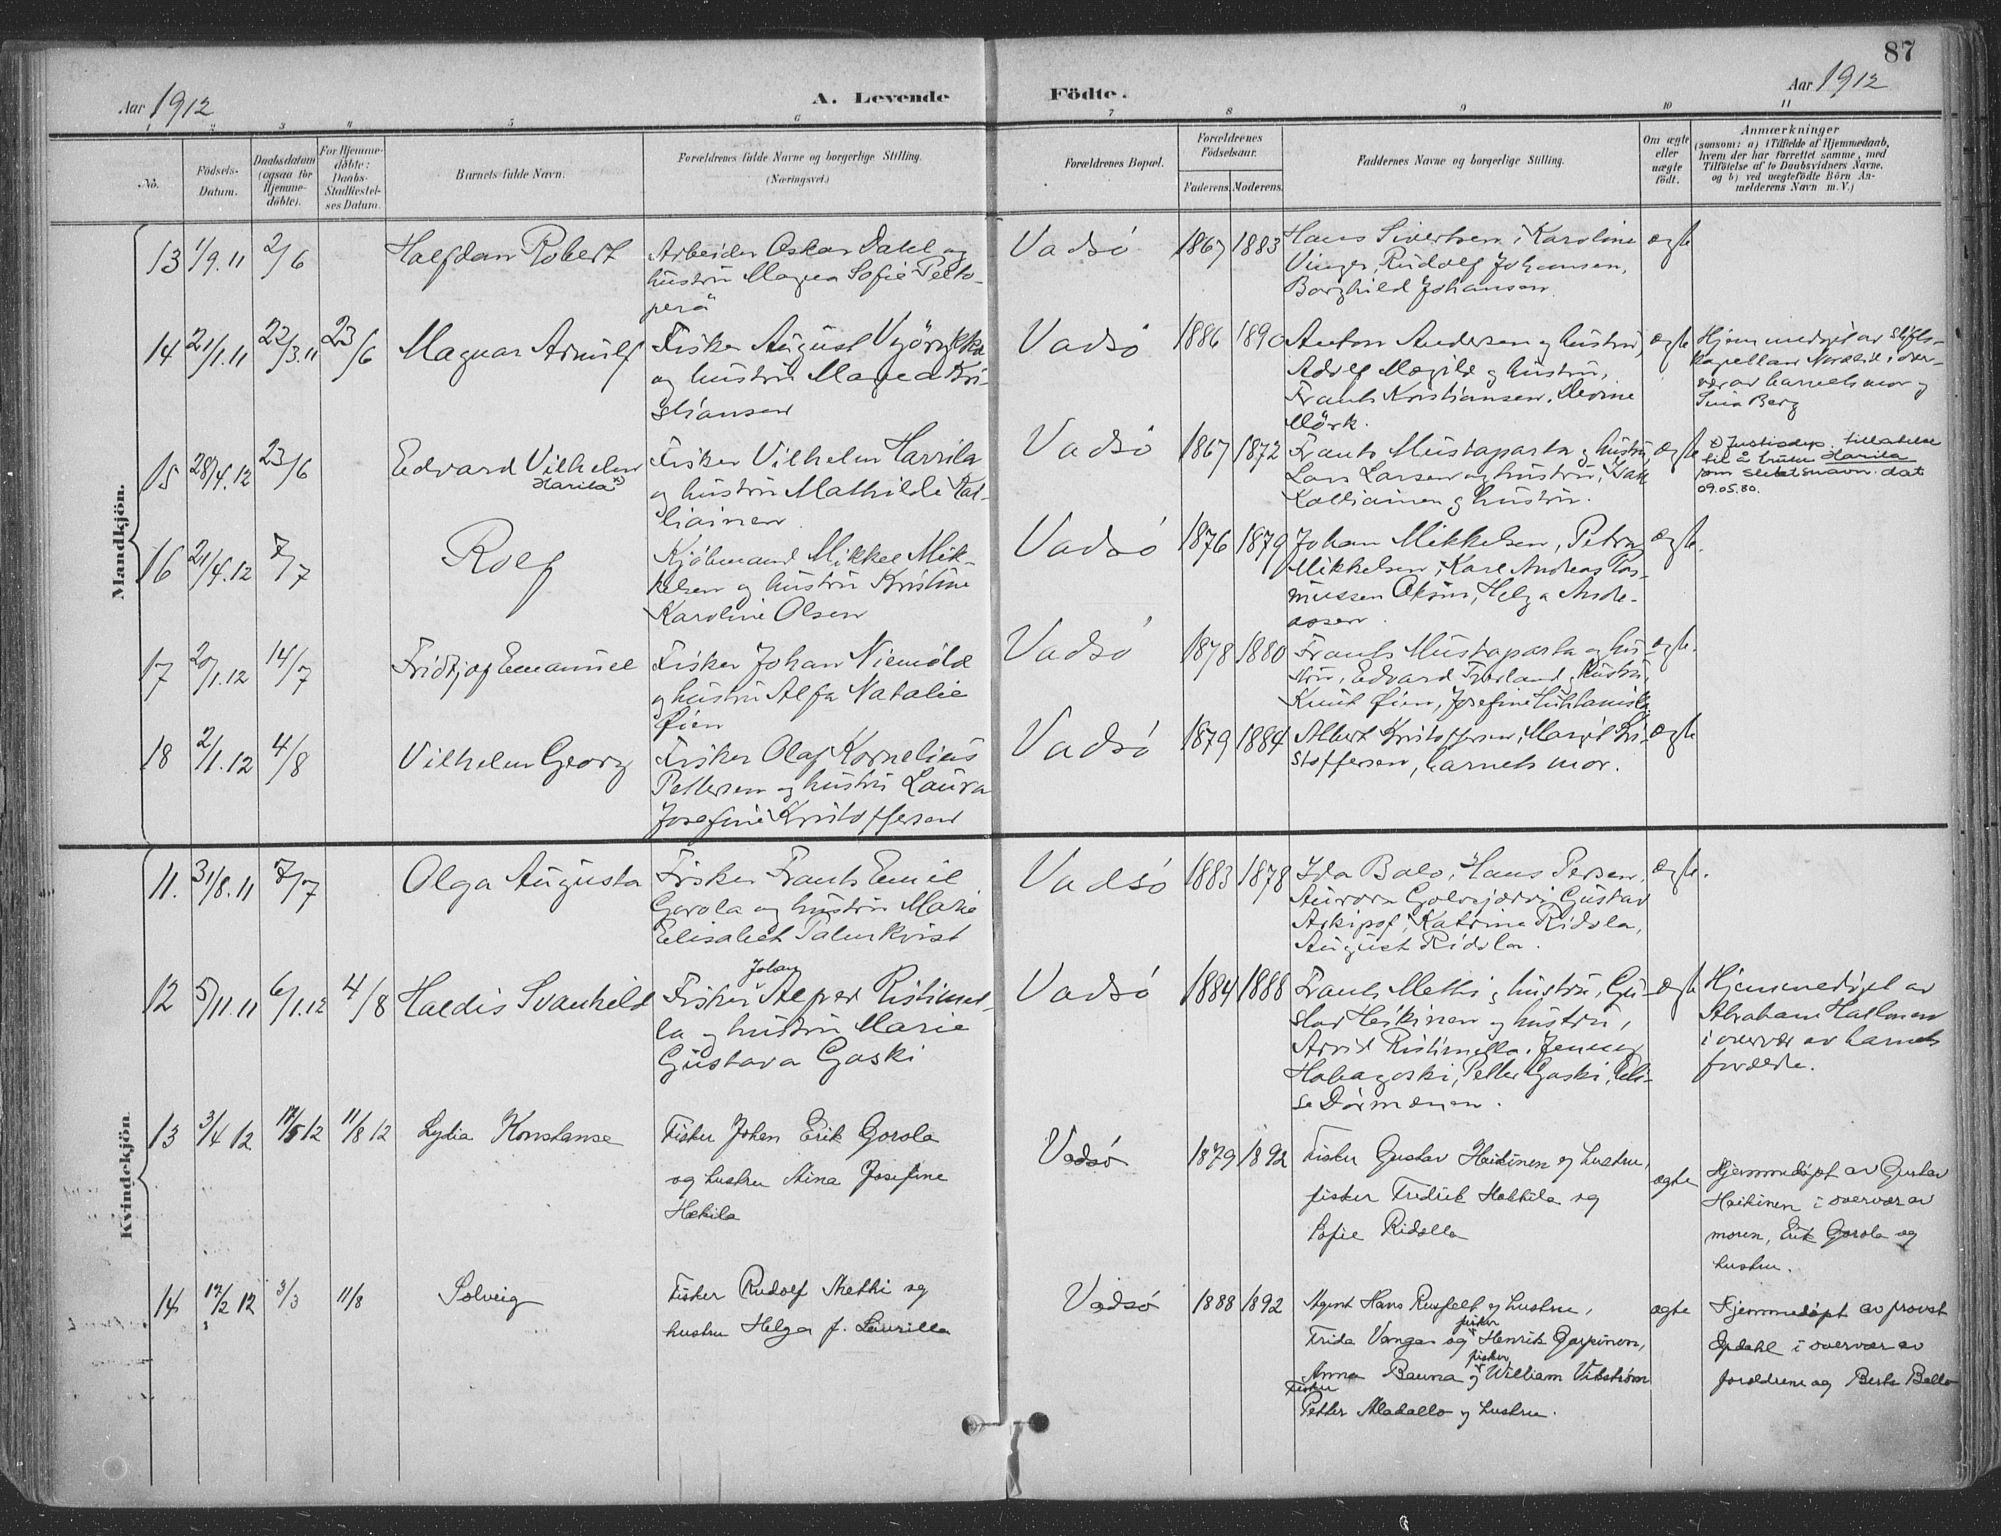 87
Aar 1912
A. Levende Födte.
Aar 1912
1 2 3 4 5 6 7 8 9 10 11
No.
Födsels-
Datum.
Daabsdatum
(ogsaa for
Hjemme-
döbte).
For Hjemme-
döbte:
Daabs-
Stadfæstel-
ses Datum.
Barnets fulde Navn.
Forældrenes fulde Navne og borgerlige Stilling.
(Næringsvei.)
Forældrenes Bopæl.
Forældrenes
Födselsaar.
Faderens. Moderens.
Faddernes Navne og borgerlige Stilling.
Om ægte
eller
uægte
födt.
Anmærkninger
(saasom: a) i Tilfælde af Hjemmedaab,
hvem der har forrettet samme, med
Tilföielse af to Daabsvidners Navne,
og b) ved uægtefödte Börn An-
melderens Navn m. V.)
Mandkjön.
13 1/9.11 2/6
Halfdan Robert
Arbeider Oskar Dahl og
hustru Magna Sofie Pelto-
perä
Vadsö 1867 1883
Hans Sivertsen, Karoline
Vinger, Rudolf Johansen,
Borghild Johansen.
ægte
14 21/1.11 22/3.11 23/6
Magnar Arnulf
Fisker August
og hustru Magna Kri-
stiansen
Vadsö 1886 1890
Anton Andersen og hustru,
Adolf og hustru,
Frants Kristiansen,
Mörk.
ægte
Hjemmedöpt av stifts-
kapellan i over-
vær av barnets mor og
Berg
15 28/4.12 23/6
Edvard Vilhelm
Harila x)
Fisker Vilhelm Harrila
og hustru Mathilde Kal-
liainen
Vadsö 1867 1872
Frants Mustaparta og hustru,
Lars Larsen og hustru,
Kalliainen og hustru.
ægte
x) Justisdep. tillatelse
til å bruke Harila
som slektsnavn dat
09.05.80.
16 21/4.12 7/7
Rolf
Kjöbmand Mikkel Mik-
kelsen og hustru Kristine
Karoline Olsen
Vadsö 1876 1879
Johan Mikkelsen, Petra
Mikkelsen, Karl Andreas Ras-
mussen, Helga Andre-
assen.
ægte.
17 20/1.12 14/7
Fridtjof Emanuel
Fisker Johan
og hustru Alfa Natalie
Øien
Vadsö 1878 1880
Frants Mustaparta og hu-
stru, Edvard og hustru,
Knut Øien, Josefine
ægte.
18 2/1.12 4/8
Vilhelm Georg
Fisker Olaf Kornelius
Pettersen og hustru Laura
Josefine Kristoffersen
Vadsö 1879 1884
Albert Kristoffersen, Margit Kri-
stoffersen, barnets mor.
ægte
Kvindekjön
11. 31/8.11 7/7
Olga Augusta
Fisker Frants Emil
Gorola og hustru Marie
Elisabet Palmkvist
Vadsö 1883 1878
Ida Balo, Hans Persen,
Aurora Golvejärvi, Gustav
Arkipof, Katrine Ridola,
August Ridola.
ægte.
12 5/11.11 6/1.12 4/8
Haldis Svanhild
Johan
Fisker Alfred Ristimel-
la og hustru Marie
Gustava Gaski
Vadsö 1884 1888
Frants Methi og hustru, Gu-
stav Heikinen og hustru,
Arvid Ristimella, Jenny
Petter Gaski, Eli-
se
ægte
Hjemmedöpt av
Abraham
i overvær av barnets
forældre.
13 3/4 12 17/5 12 11/8 12
Lydia Konstanse
Fisker Johan Erik Gorola
og hustru Aina Josefine
Hekila
Vadsø 1879 1892
Fisker Gustav Heikinen og hustru,
fisker Fredrik Hekkila og
Sofie Ridolla
ægte
Hjemmedøpt av Gustav
Heikinen i overvær av
moren, Erik Gorola og
hustru.
14 17/2 12 3/3 11/8
Solveig
Fisker Rudolf Methi og
hustru Helga f. Laurilla
Vadsø 1888 1892
Agent Hans og hustru,
fisker
Frida og Henrik
fisker
Anna Bauna og William Vikstrøm
Fisker
Petter og hustru.
ægte
Hjemmedøpt av provst
Opdahl i overvær av
foreldrene og Berta Ballo